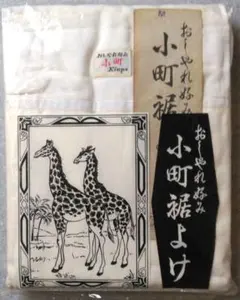 おしゃれ好み
小町
Kings
おしゃれ好み
小町裾
おしゃれ好み
小町裾よけ